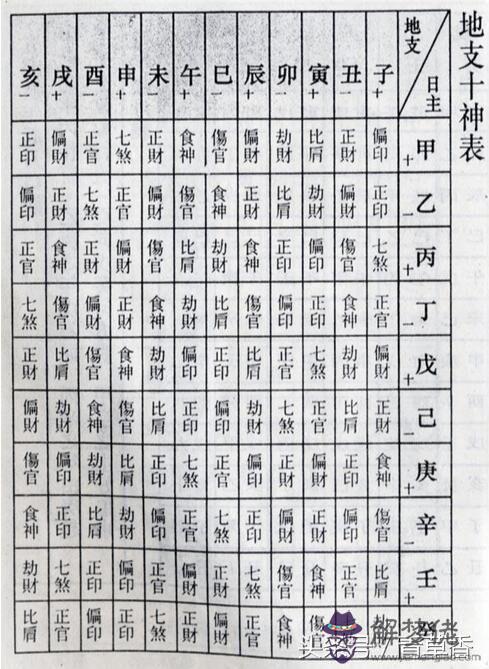 地支十神表
地支 日主 子+ 丑- 寅+ 卯- 辰+ 巳- 午+ 未- 申+ 酉- 戌+ 亥-
甲+ 偏印 正財 比肩 劫財 偏財 傷官 食神 正財 七煞 正官 偏財 正印
乙- 正印 偏財 劫財 比肩 正財 食神 傷官 偏財 正官 七煞 正財 偏印
丙+ 七煞 傷官 偏印 正印 食神 劫財 比肩 傷官 偏財 正財 食神 正官
丁- 正官 食神 正印 偏印 傷官 比肩 劫財 食神 正財 偏財 傷官 七煞
戊+ 偏財 劫財 七煞 正官 比肩 正印 偏印 劫財 食神 傷官 比肩 正財
己- 正財 比肩 正官 七煞 劫財 偏印 正印 比肩 傷官 食神 劫財 偏財
庚+ 食神 正印 偏財 正財 偏印 正官 七煞 正印 比肩 劫財 偏印 傷官
辛- 傷官 偏印 正財 偏財 正印 七煞 正官 偏印 劫財 比肩 正印 食神
壬+ 比肩 正官 食神 傷官 七煞 正財 偏財 正官 偏印 正印 七煞 劫財
癸 傷官 食神 正官 偏財 正財 七煞 正印 偏印 正官 比肩
解夢佬
www.jiemenglao.com